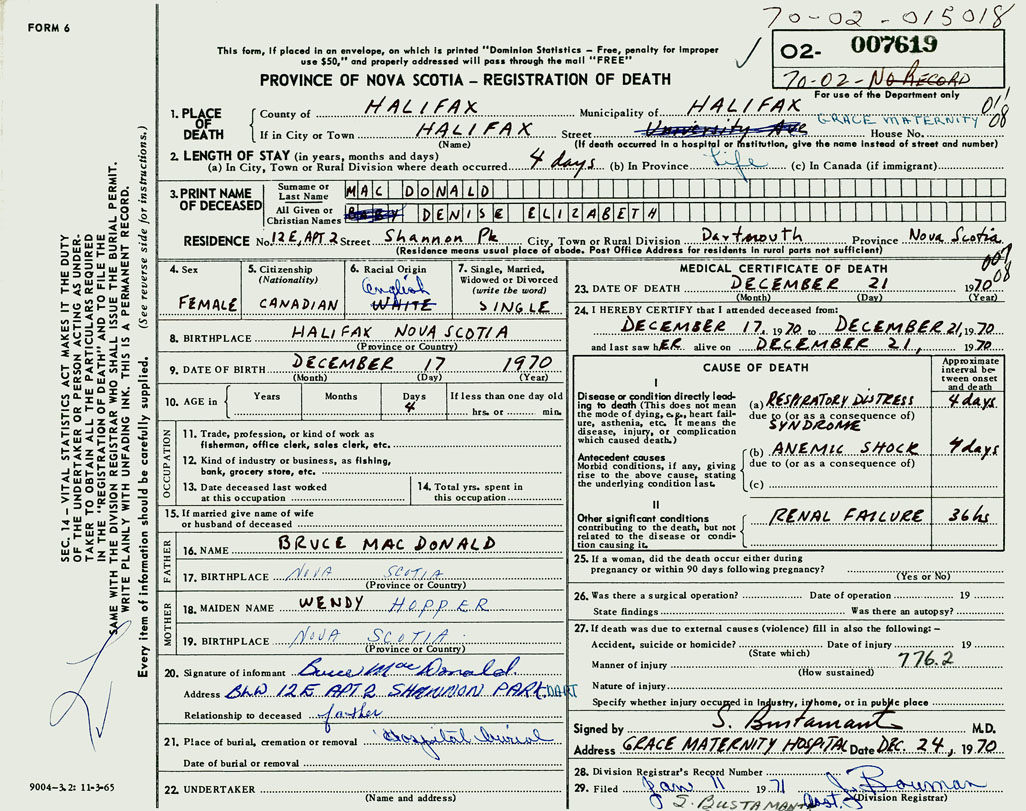 FORM 6
70-02-015018
This form, if placed in an envelope, on which is printed "Dominion Statistics – Free, penalty for improper
use $50," and properly addressed will pass through the mail "FREE"
PROVINCE OF NOVA SCOTIA – REGISTRATION OF DEATH
02- 007619
70-02-NO RECORD
For use of the Department only
1. PLACE OF DEATH
County of HALIFAX Municipality of HALIFAX 01/08
GRACE MATERNITY
If in City or Town HALIFAX Street University Ave House No.
(Name) (If death occurred in a hospital or institution, give the name instead of street and number)
2. LENGTH OF STAY (in years, months and days)
(a) In City, Town or Rural Division where death occurred 4 days (b) In Province Life (c) In Canada (if immigrant)
3. PRINT NAME OF DECEASED
Surname or Last Name MAC DONALD
All Given or Christian Names BABY DENISE ELIZABETH
RESIDENCE No. 12E, APT 2 Street Shannon Pk City, Town or Rural Division Dartmouth Province Nova Scotia
(Residence means usual place of abode. Post Office Address for residents in rural parts not sufficient)
4. Sex
FEMALE
5. Citizenship
(Nationality)
CANADIAN
6. Racial Origin
English
WHITE
7. Single, Married,
Widowed or Divorced
(write the word)
SINGLE
8. BIRTHPLACE HALIFAX NOVA SCOTIA
(Province or Country)
9. DATE OF BIRTH DECEMBER 17 1970
(Month) (Day) (Year)
10. AGE in Years Months Days 4 If less than one day old
hrs. or min.
OCCUPATION
11. Trade, profession, or kind of work as
fisherman, office clerk, sales clerk, etc.
12. Kind of industry or business, as fishing,
bank, grocery store, etc.
13. Date deceased last worked
at this occupation
14. Total yrs. spent in
this occupation
15. If married give name of wife
or husband of deceased
FATHER
16. NAME BRUCE MAC DONALD
17. BIRTHPLACE NOVA SCOTIA
(Province or Country)
MOTHER
18. MAIDEN NAME WENDY HOPPER
19. BIRTHPLACE NOVA SCOTIA
(Province or Country)
20. Signature of informant Bruce MacDonald
Address BLD 12E APT 2 SHANNON PARK DART
Relationship to deceased father
21. Place of burial, cremation or removal Hospital burial
Date of burial or removal
22. UNDERTAKER
(Name and address)
MEDICAL CERTIFICATE OF DEATH
23. DATE OF DEATH DECEMBER 21 1970
(Month) (Day) (Year)
24. I HEREBY CERTIFY that I attended deceased from:
DECEMBER 17, 1970 to DECEMBER 21, 1970
and last saw hER alive on DECEMBER 21, 1970
CAUSE OF DEATH
Approximate
interval be-
tween onset
and death
I
Disease or condition directly lead-
ing to death (This does not mean
the mode of dying, e.g., heart fail-
ure, asthenia, etc. It means the
disease, injury, or complication
which caused death.)
(a) RESPIRATORY DISTRESS 4 days
due to (or as a consequence of)
SYNDROME
Antecedent causes
Morbid conditions, if any, giving
rise to the above cause, stating
the underlying condition last.
(b) ANEMIC SHOCK 4 days
due to (or as a consequence of)
(c)
II
Other significant conditions
contributing to the death, but not
related to the disease or condi-
tion causing it.
RENAL FAILURE 36 hs
25. If a woman, did the death occur either during
pregnancy or within 90 days following pregnancy?
(Yes or No)
26. Was there a surgical operation? Date of operation 19
State findings Was there an autopsy?
27. If death was due to external causes (violence) fill in also the following: –
Accident, suicide or homicide? Date of injury 19
(State which)
776.2
Manner of injury
(How sustained)
Nature of injury
Specify whether injury occurred in industry, in home, or in public place
Signed by S. Bustamante M.D.
Address GRACE MATERNITY HOSPITAL Date DEC. 24, 1970
28. Division Registrar's Record Number
29. Filed Jan 11 1971 J. Bouman
(Division Registrar)
S. BUSTAMANTE
SEC. 14 – VITAL STATISTICS ACT MAKES IT THE DUTY
OF THE UNDERTAKER OR PERSON ACTING AS UNDER-
TAKER TO OBTAIN ALL THE PARTICULARS REQUIRED
IN THE "REGISTRATION OF DEATH" AND TO FILE THE
SAME WITH THE DIVISION REGISTRAR WHO SHALL ISSUE THE BURIAL PERMIT.
WRITE PLAINLY WITH UNFADING INK. THIS IS A PERMANENT RECORD.
Every item of information should be carefully supplied. (See reverse side for instructions.)
9004-3.2: 11-3-65